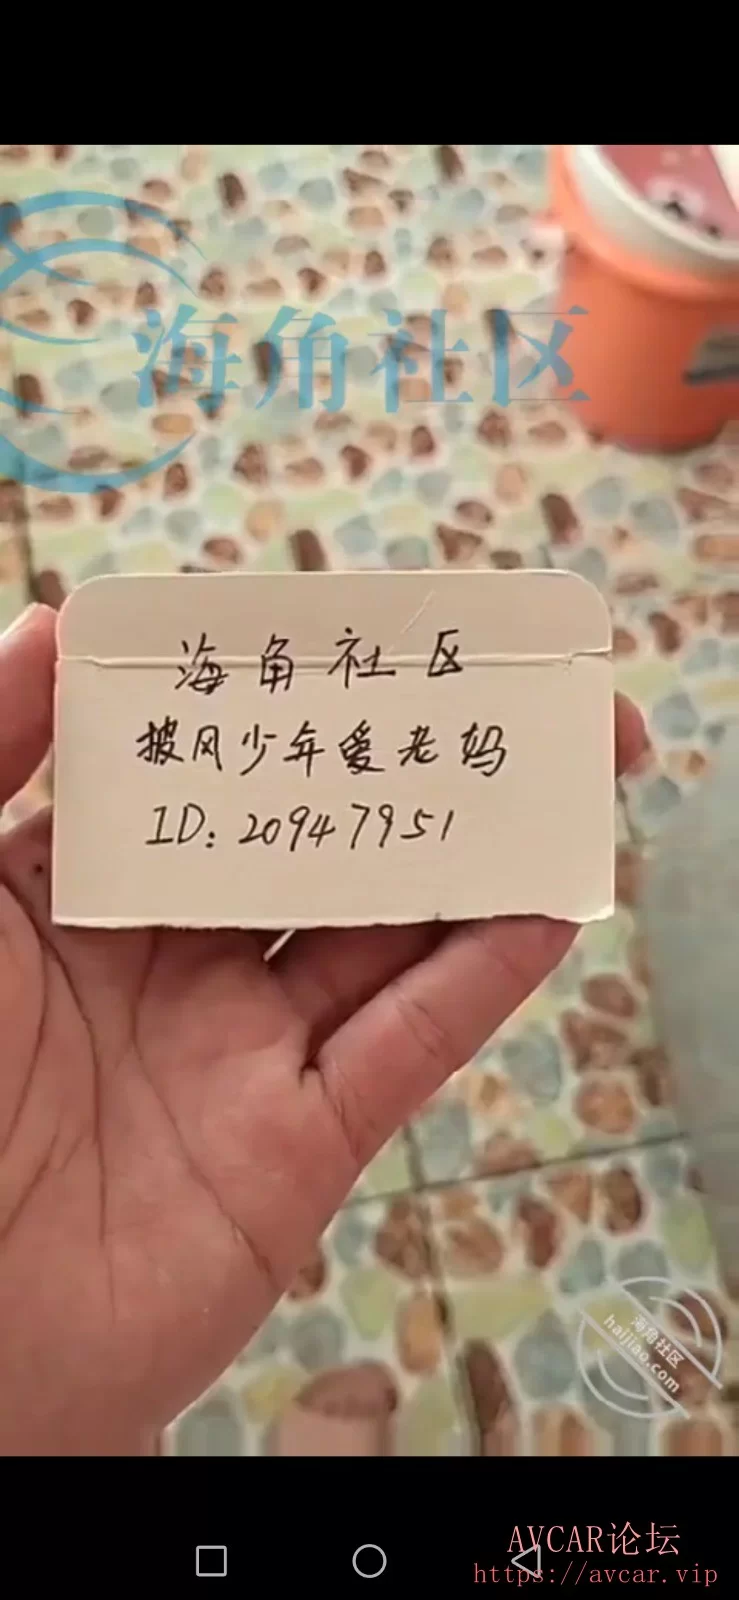 海角社区
海角社区
披风少年爱老妈
ID: 20947951
海角社区
haijiao.com
AVCAR论坛
https://avcar.vip